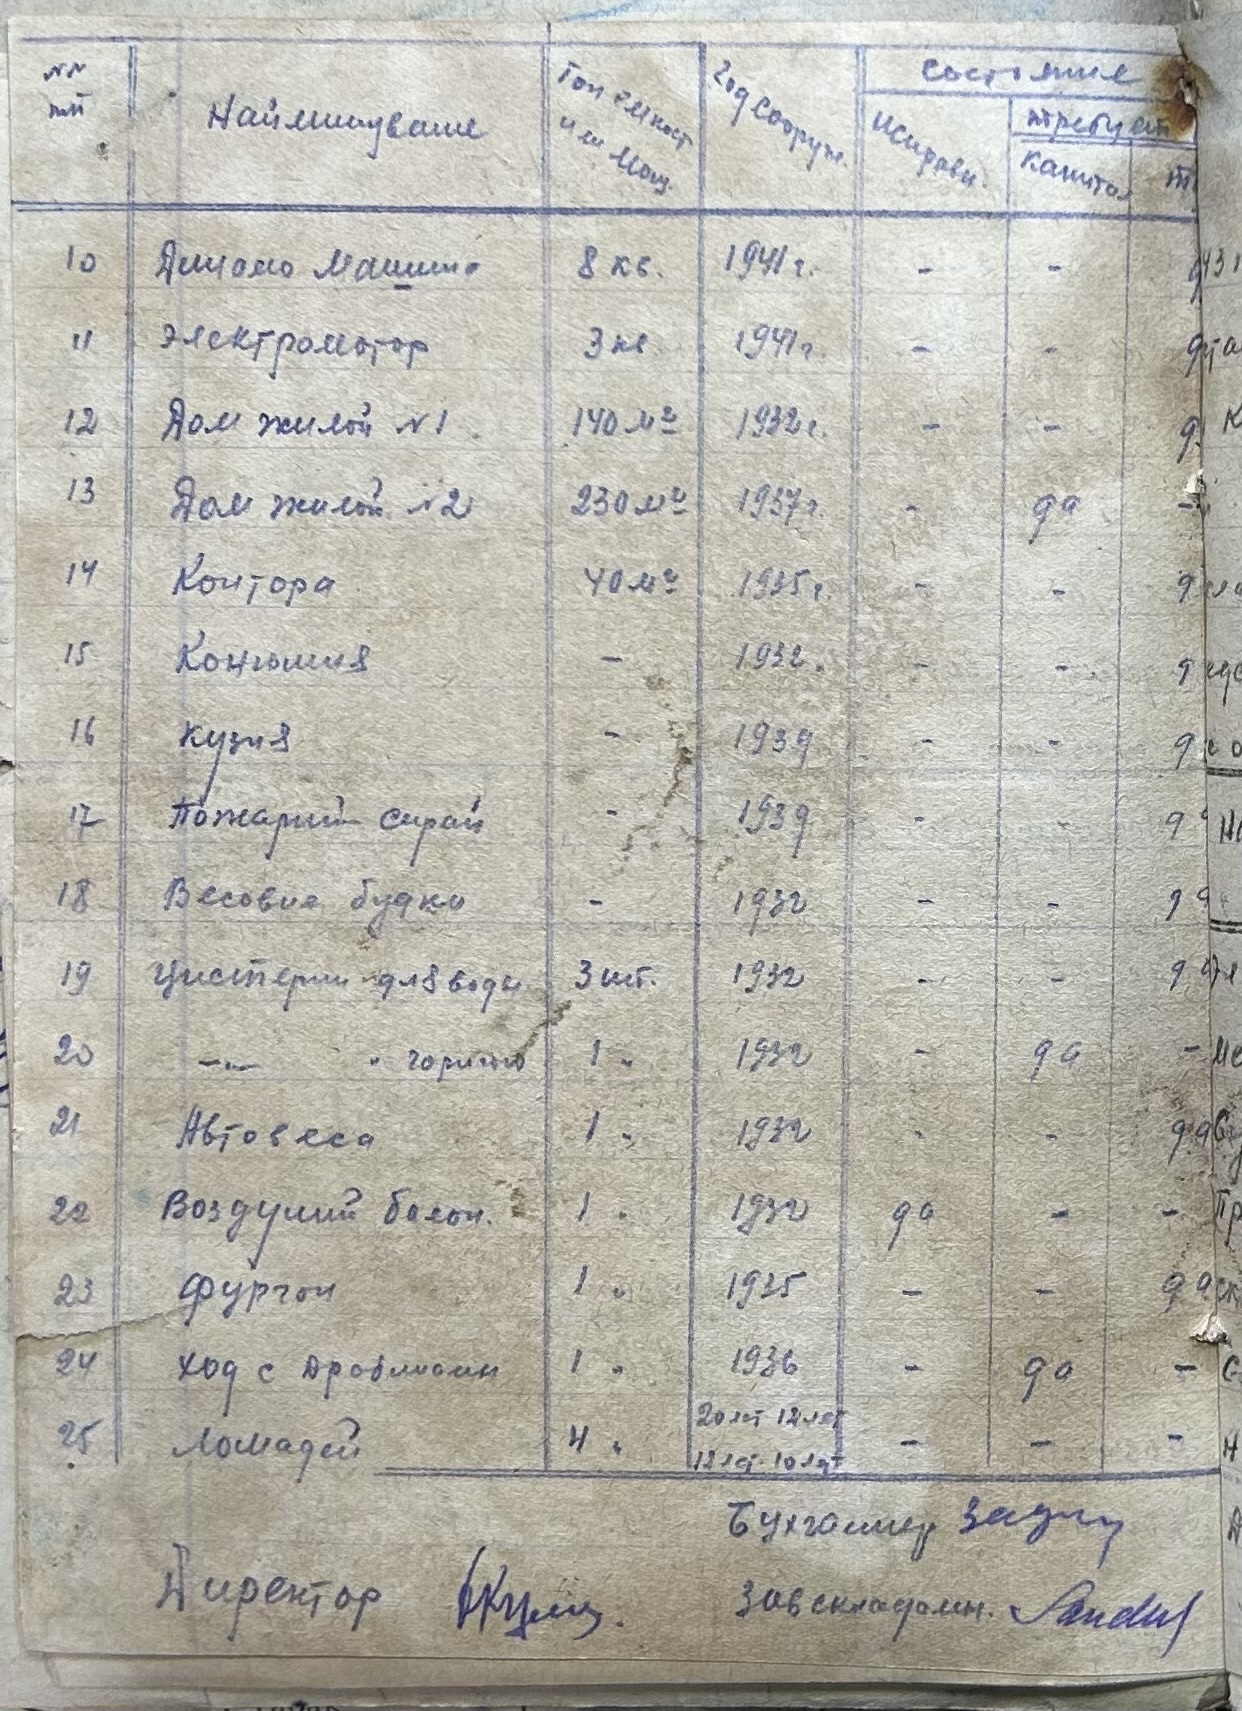 NN Найминуваше Тон емкост Год сооруж. состояние
пп или мощ. Исправн. требует
капитал т
10 Динамо машина 8 кв. 1941 г. - -
11 Электромотор 3 кв 1941 г - -
12 Дом жилой N1 140 м² 1932 г. - -
13 Дом жилой N2 230 м² 1937 г. - да -
14 Контора 40 м² 1935 г. - -
15 Конюшня - 1932. - -
16 Кузня - 1939 - -
17 Пожарний сарай - 1939 - -
18 Весовие будки - 1932 - -
19 Цистерни для воды 3 шт. 1932 - -
20 -"- " горючо 1 " 1932 - да -
21 Автовеса 1 " 1932 - - да
22 Воздушний балон. 1 " 1932 да - -
23 Фургон 1 " 1935 - - да
24 Ход с Дробинами 1 " 1936 - да -
25 Лошадей 4 " 20 лет 12 лет - - -
12 лет 10 лет
Бухгалтер
Директор Завскладами.